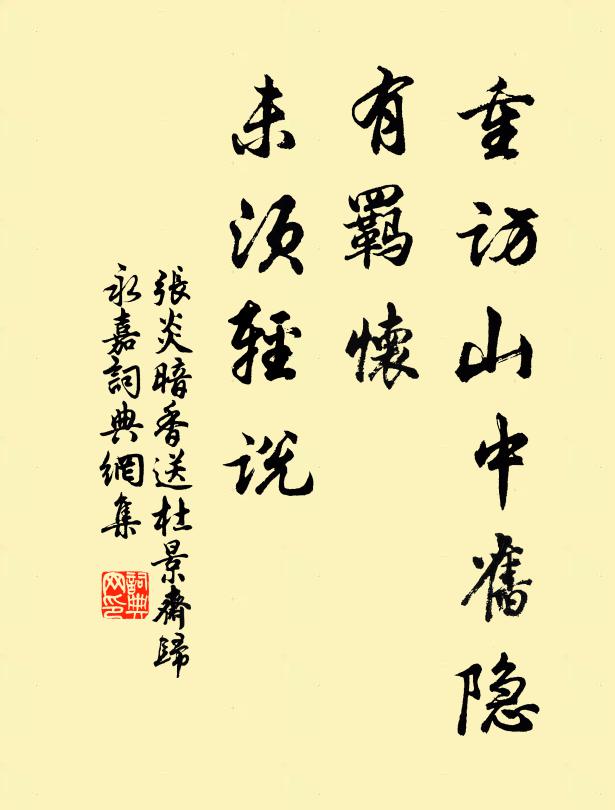 重访山中舊隐
有羈懷
未须輕说
張炎暗香送杜景齋歸
永嘉詞典網集
詞典
网印